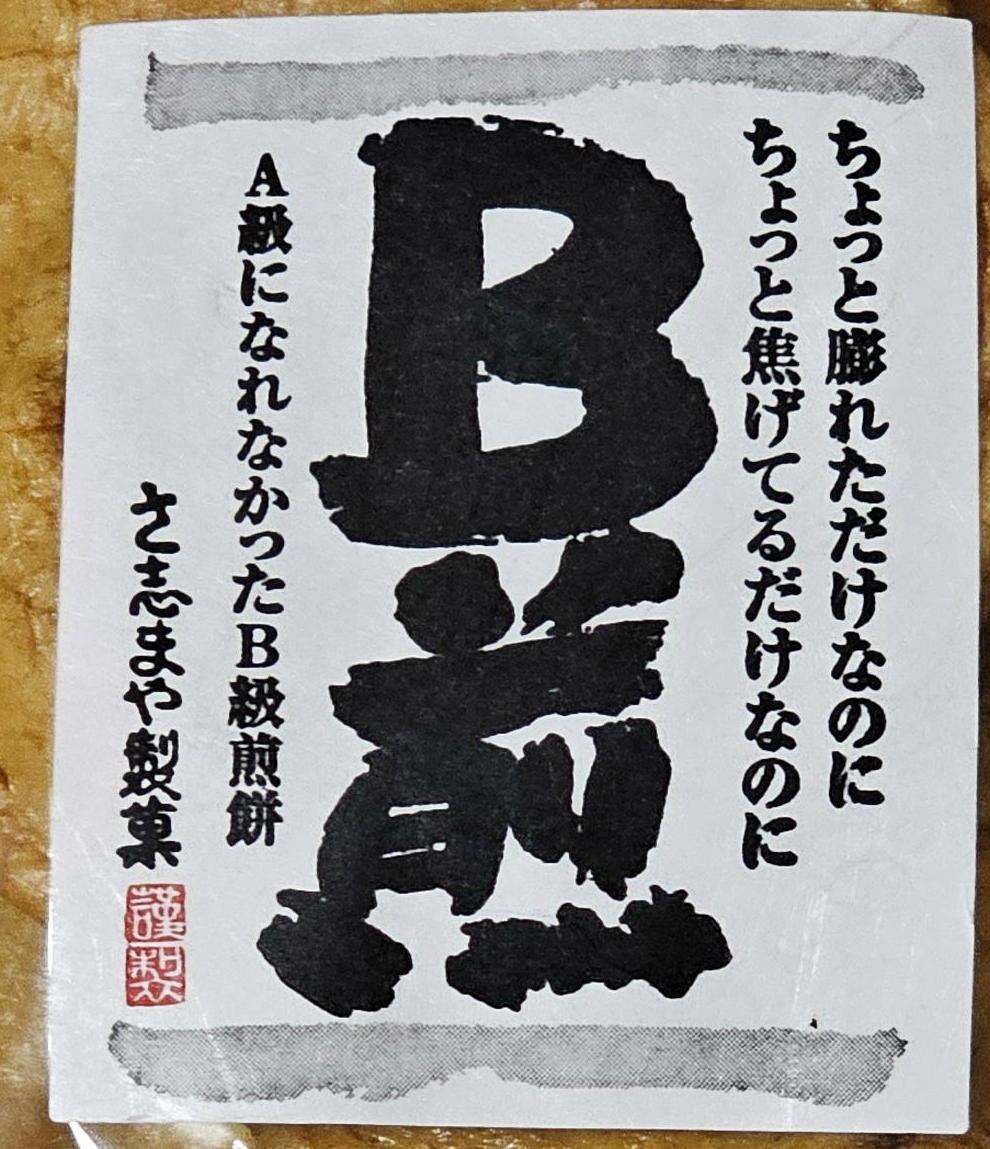 ちょっと膨れただけなのに
ちょっと焦げてるだけなのに
B煎
A級になれなかったB級煎餅
さ志まや製菓
謹製